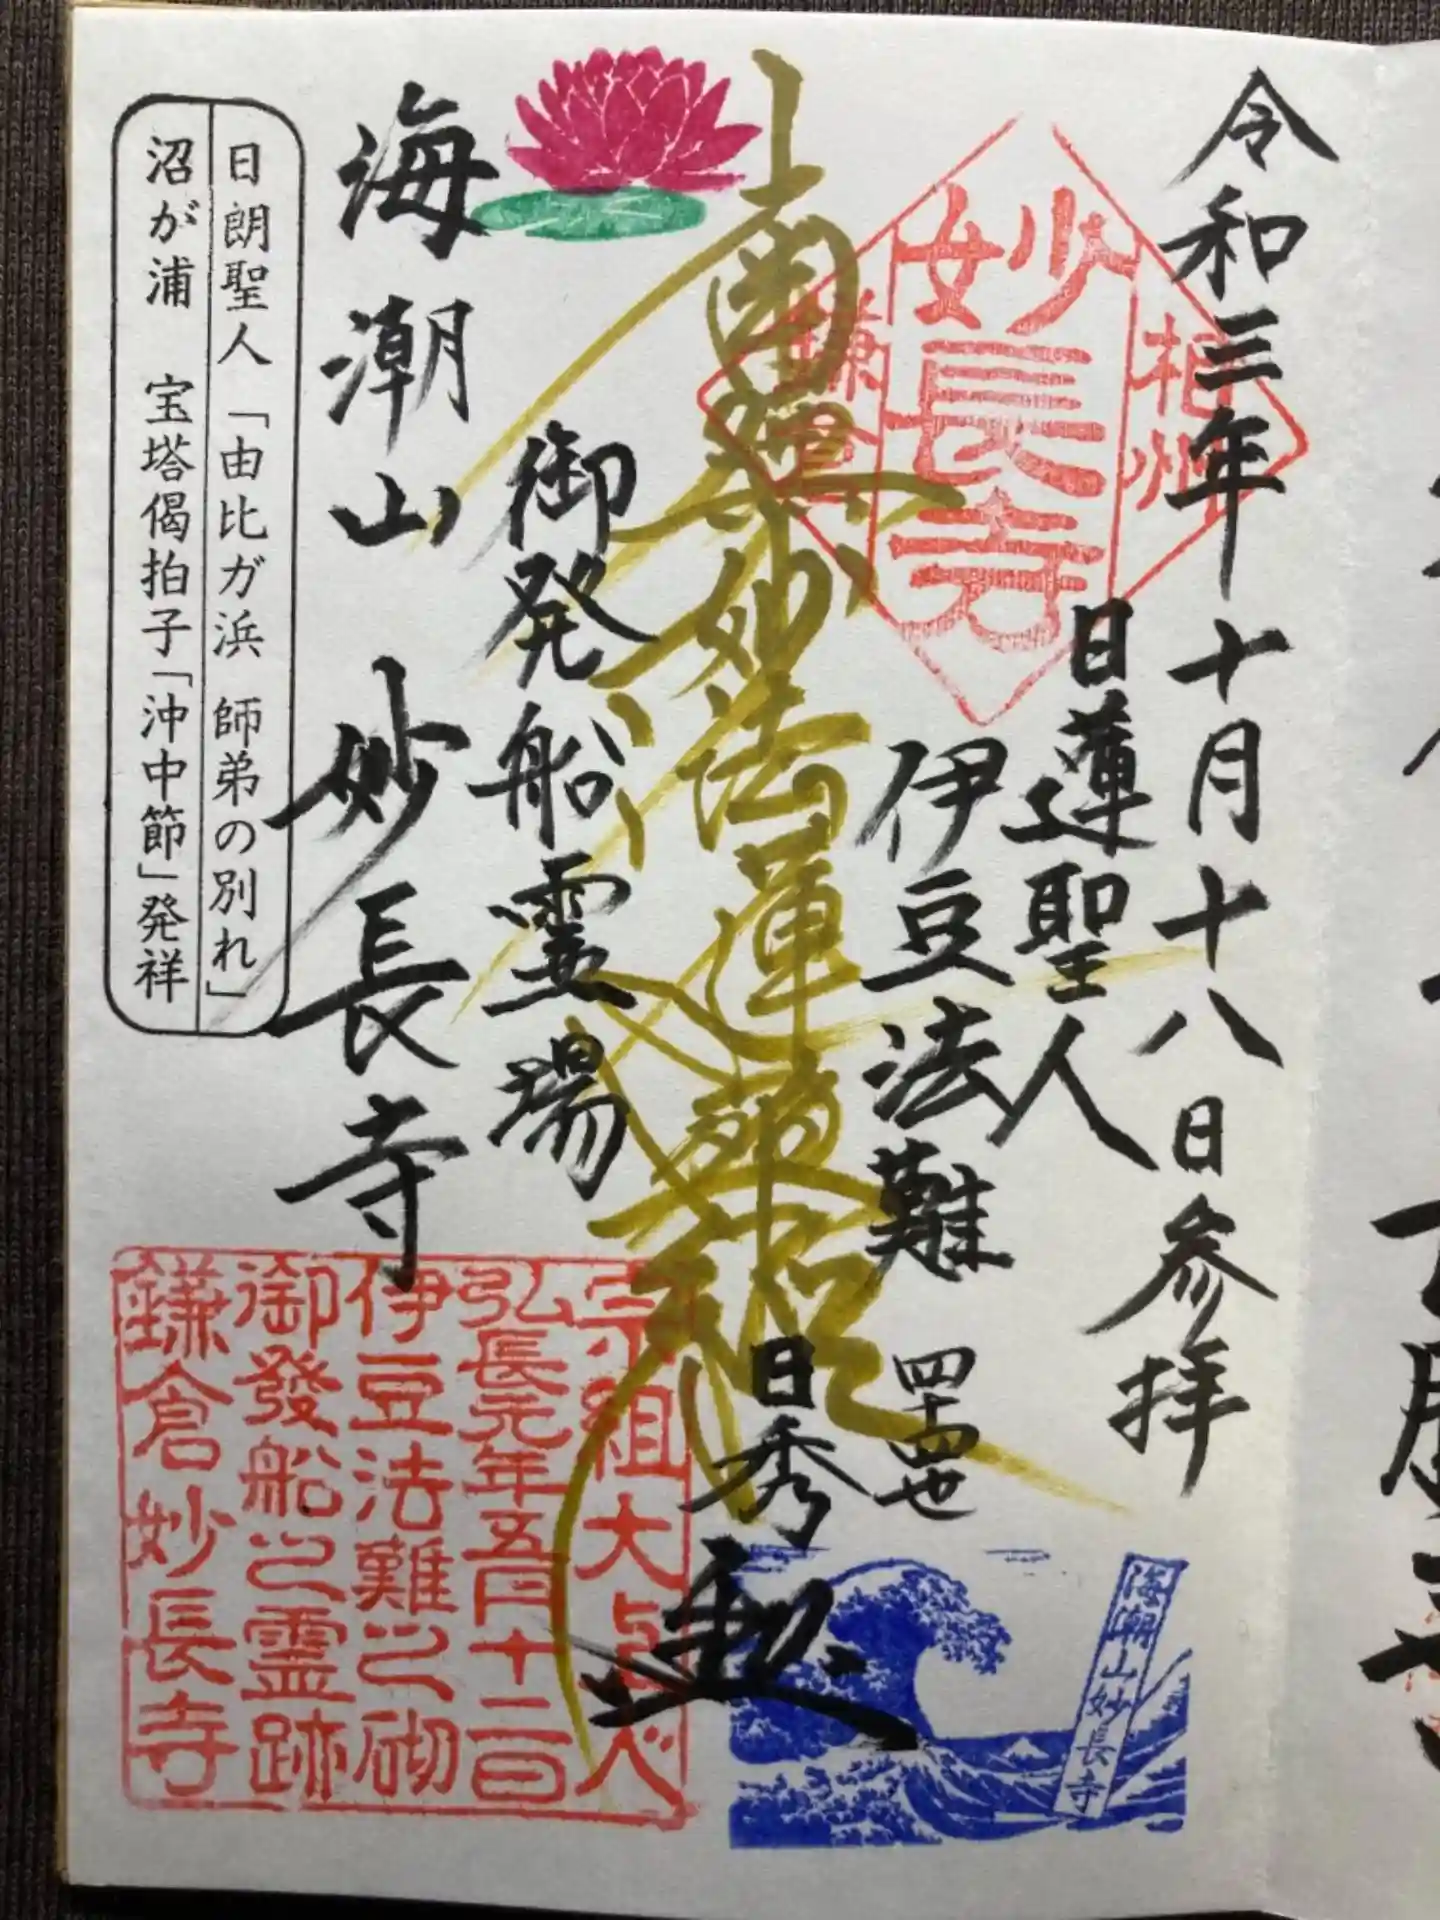 令和三年十月十八日参拝
日蓮聖人
伊豆法難
四十四世
相州
妙長寺
鎌倉
南無妙法蓮華経
日秀
御発船霊場
海潮山 妙長寺
日朗聖人「由比ガ浜 師弟の別れ」
沼が浦 宝塔偈拍子「沖中節」発祥
宗祖大上人
弘長元年五月十二日
伊豆法難之砌
御發船之霊跡
鎌倉妙長寺
海潮山妙長寺